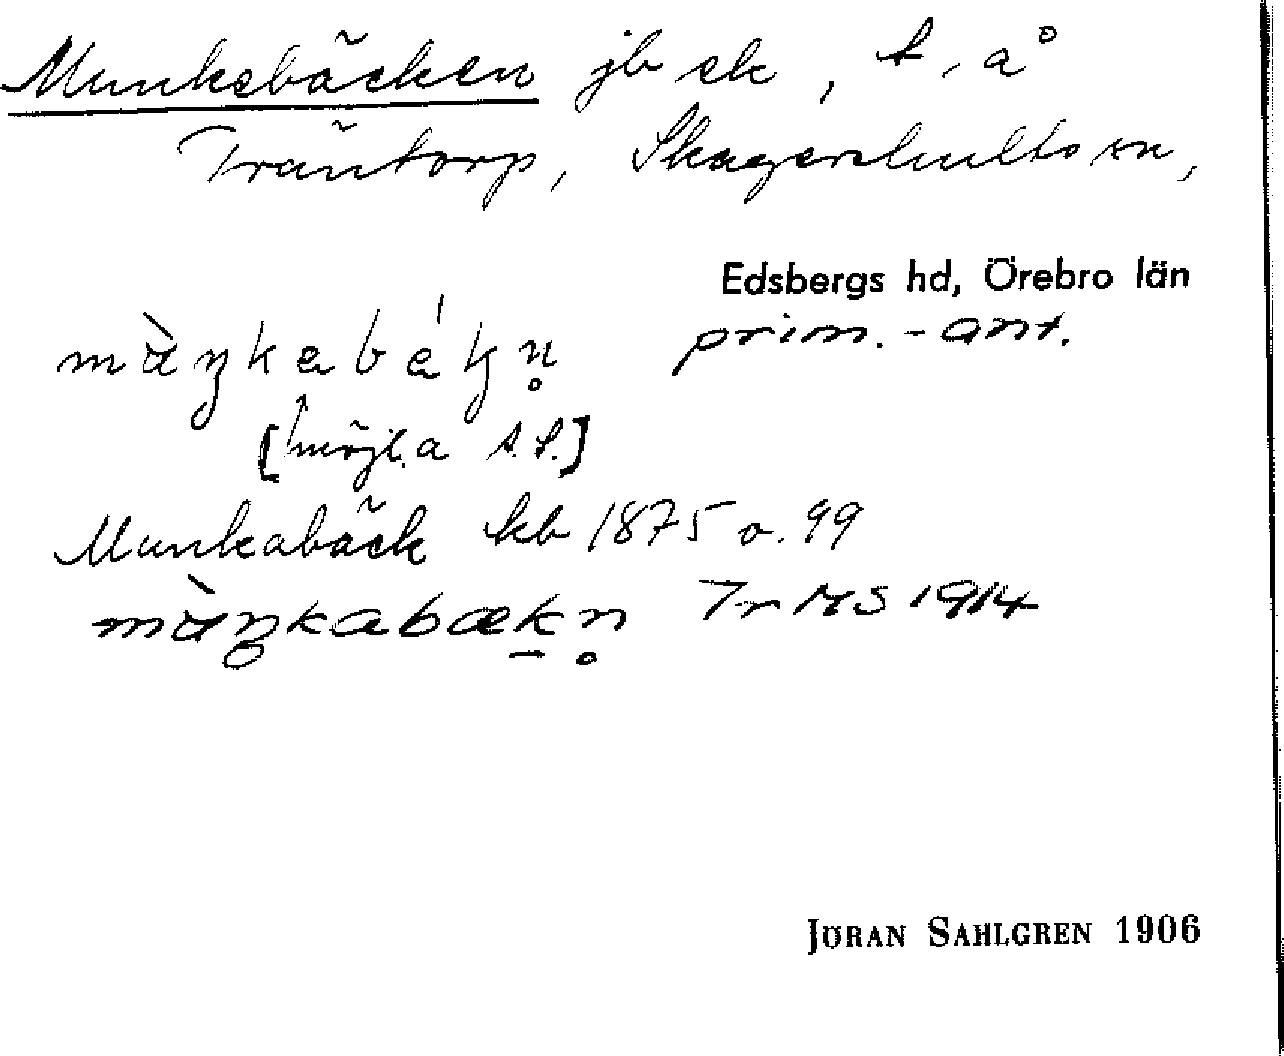 Munkabäcken jb sk, t, å
Träntorp, Skagershults sn,
Edsbergs hd, Örebro län
prim.-ant.
[möjl. a J.S.]
Munkabäck kb 1875 o. 99
mùŋkabækn̥ TrHS 1914
JÖRAN SAHLGREN 1906